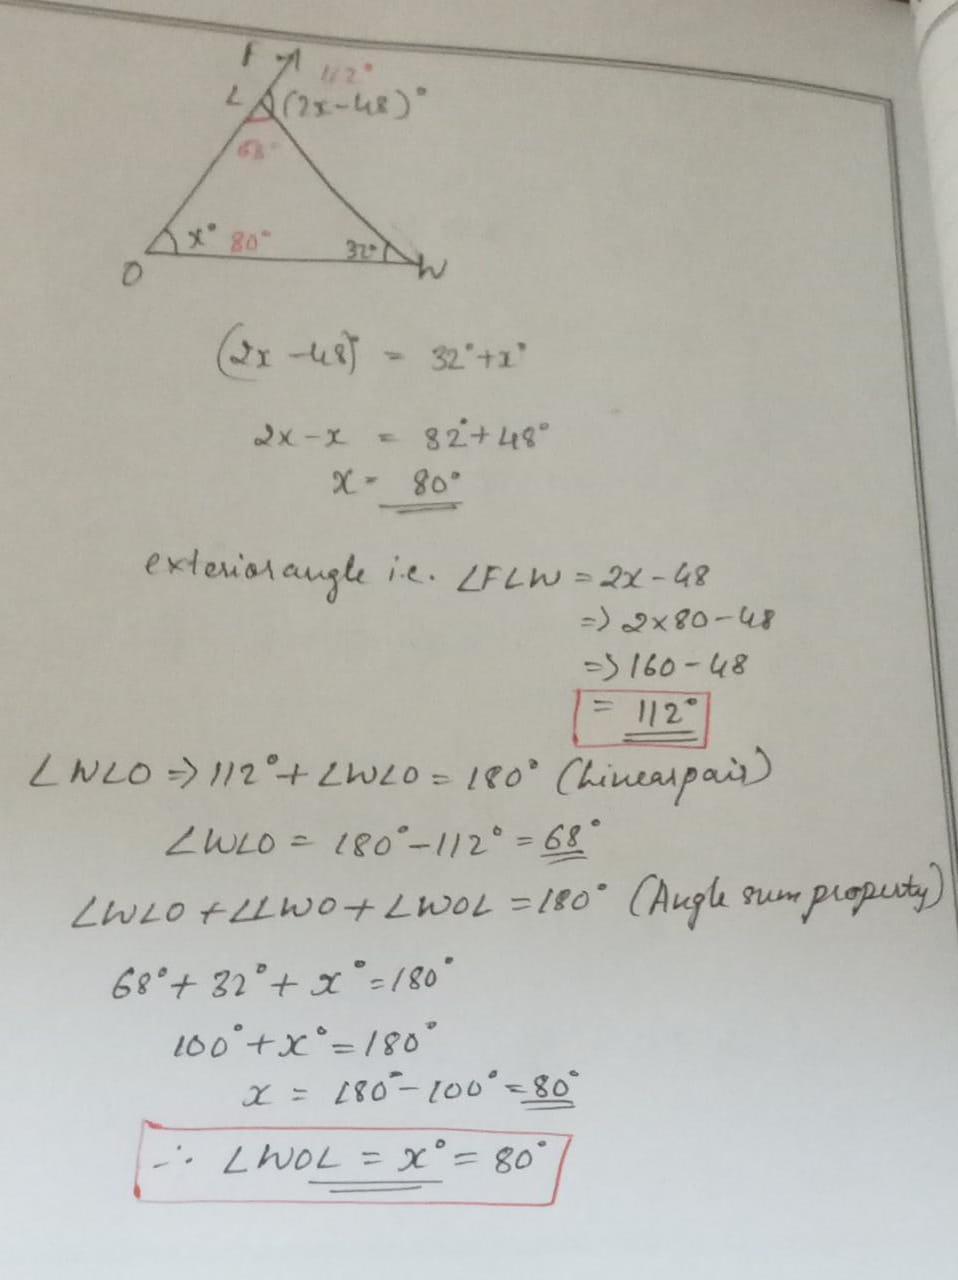 F
112°
L (2x-48)°
68°
x° 80° 32°
O W
(2x-48)° = 32°+x°
2x-x = 32°+48°
x = 80°
exterior angle i.e. ∠FLW = 2x-48
=> 2x80-48
=> 160-48
= 112°
∠WLO => 112°+∠WLO = 180° (Linear pair)
∠WLO = 180°-112° = 68°
∠WLO + ∠LWO + ∠WOL = 180° (Angle sum property)
68° + 32° + x° = 180°
100° + x° = 180°
x = 180° - 100° = 80°
∴ ∠WOL = x° = 80°